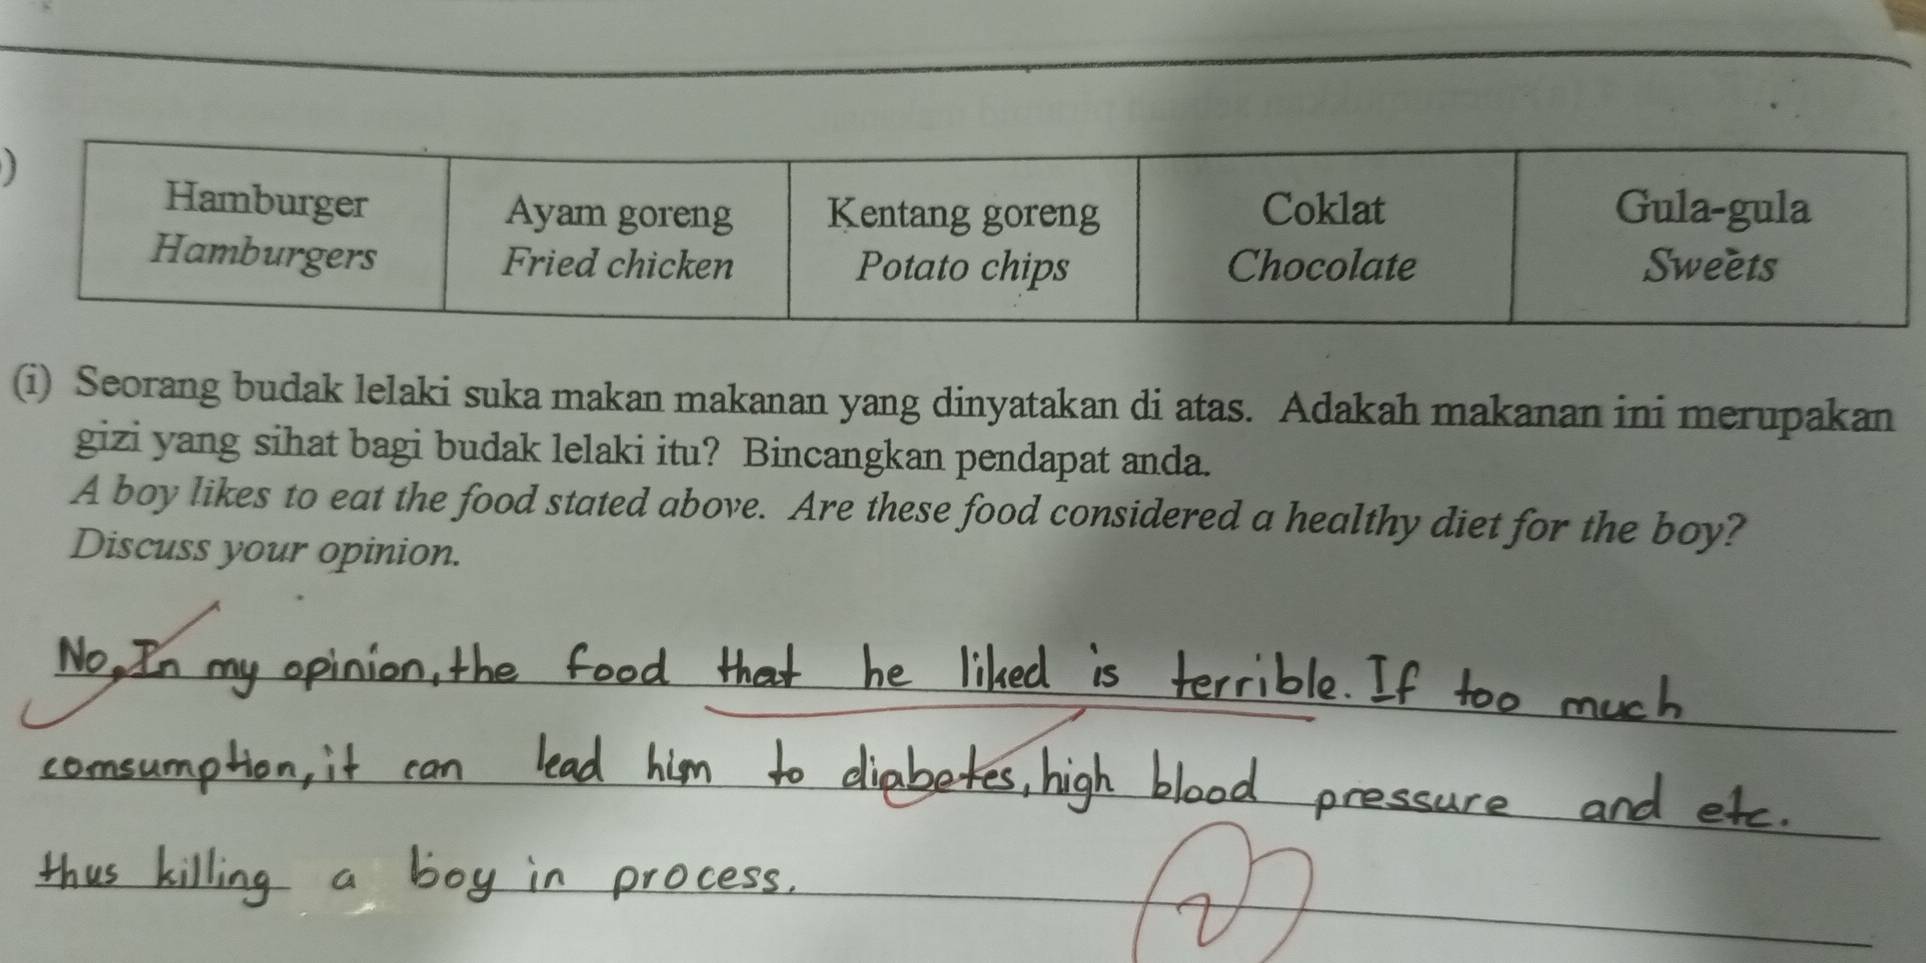 )
Hamburger Ayam goreng Kentang goreng Coklat Gula-gula
Hamburgers Fried chicken Potato chips Chocolate Sweets
(i) Seorang budak lelaki suka makan makanan yang dinyatakan di atas. Adakah makanan ini merupakan
gizi yang sihat bagi budak lelaki itu? Bincangkan pendapat anda.
A boy likes to eat the food stated above. Are these food considered a healthy diet for the boy?
Discuss your opinion.
No, In my opinion, the food that he liked is terrible. If too much
comsumption, it can lead him to diabetes, high blood pressure and etc.
thus killing a boy in process.
2